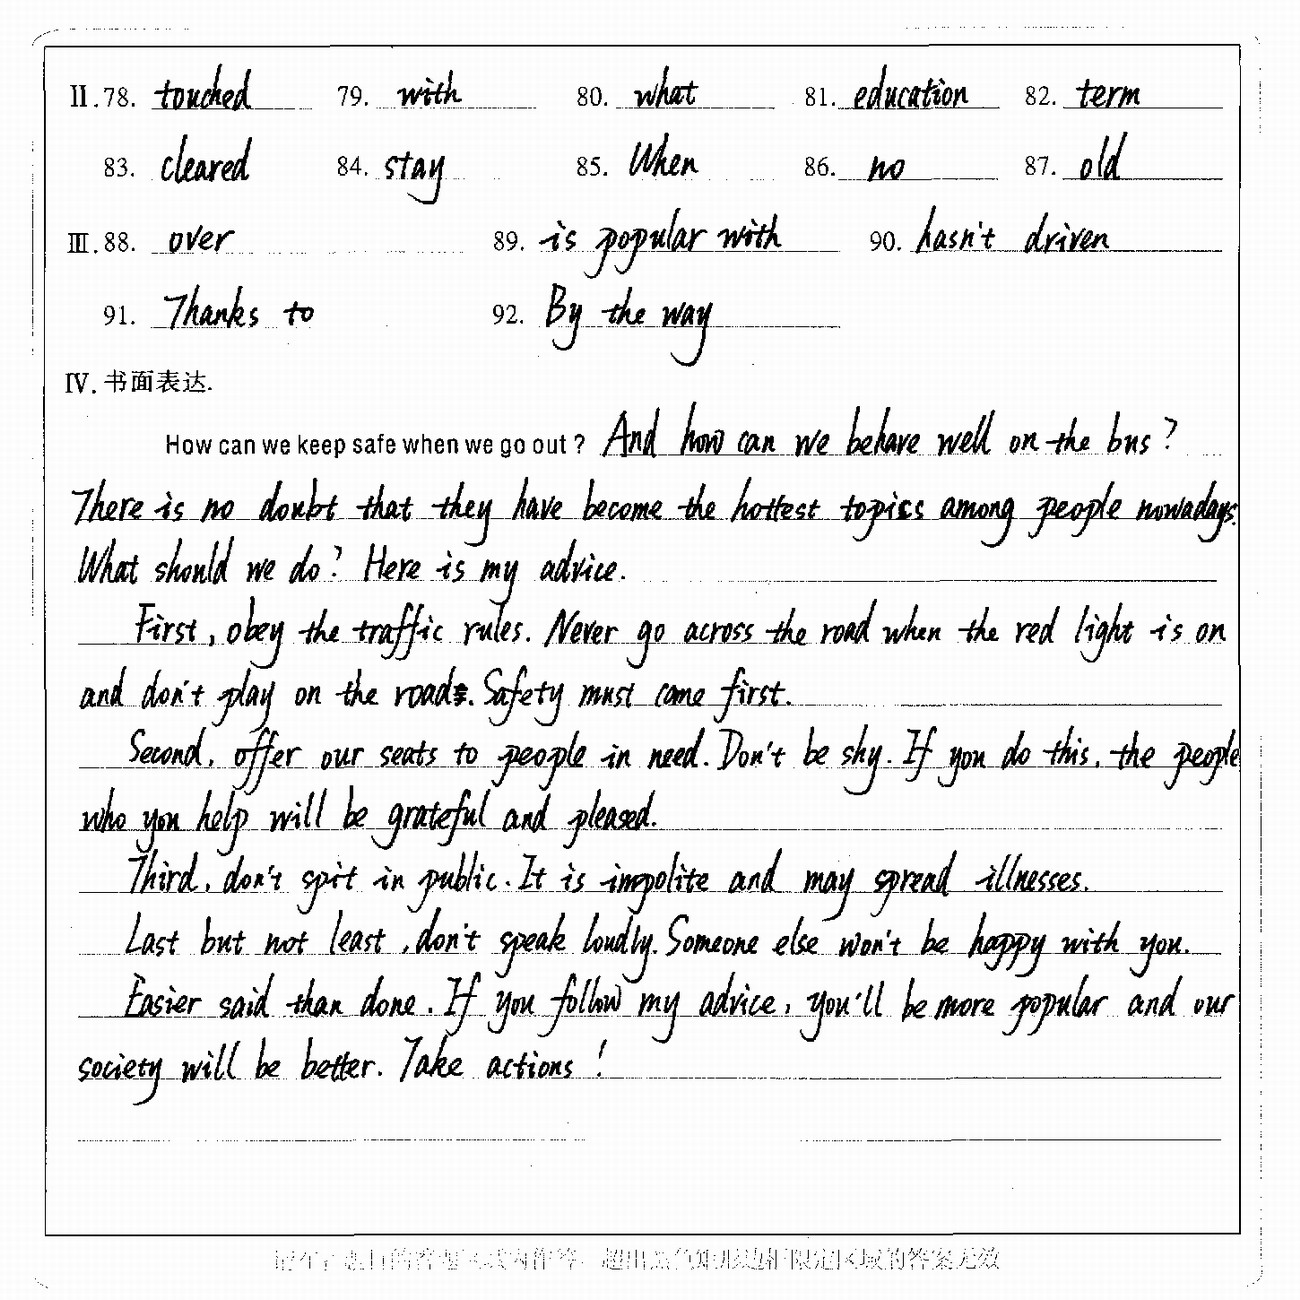 II.78. touched 79. with 80. what 81. education 82. term
83. cleared 84. stay 85. When 86. no 87. old
III.88. over 89. is popular with 90. hasn't driven
91. Thanks to 92. By the way
IV. 书面表达.
How can we keep safe when we go out? And how can we behave well on the bus?
There is no doubt that they have become the hottest topics among people nowadays.
What should we do? Here is my advice.
First, obey the traffic rules. Never go across the road when the red light is on
and don't play on the road. Safety must come first.
Second, offer our seats to people in need. Don't be shy. If you do this, the people
who you help will be grateful and pleased.
Third, don't spit in public. It is impolite and may spread illnesses.
Last but not least, don't speak loudly. Someone else won't be happy with you.
Easier said than done. If you follow my advice, you'll be more popular and our
society will be better. Take actions!
限定区域的答案无效